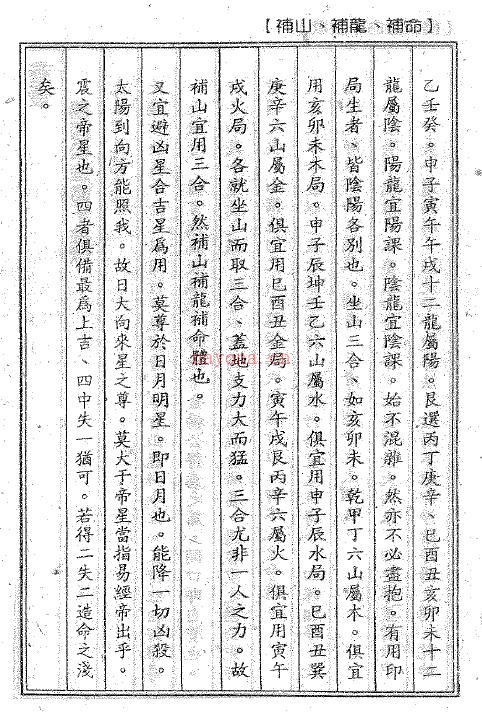 【補山、補龍、補命】
乙壬癸。申子寅午午戌十二龍屬陽。艮選丙丁庚辛、巳酉丑亥卯未十二
龍屬陰。陽龍宜陽課。陰龍宜陰課。始不混雜。然亦不必盡抱。有用印
局生者、皆陰陽各別也。坐山三合、如亥卯未。乾甲丁六山屬木。俱宜
用亥卯未木局。申子辰坤壬乙六山屬水。俱宜用申子辰水局。巳酉丑巽
庚辛六山屬金。俱宜用巳酉丑金局。寅午戌艮丙辛六屬火。俱宜用寅午
戌火局。各就坐山而取三合、蓋地支力大而猛。三合尤非一人之力。故
補山宜用三合。然補山補龍補命體也。
又宜避凶星合吉星爲用。莫尊於日月明星。即日月也。能降一切凶殺。
太陽到向方能照我。故日大向來星之尊。莫大于帝星當指易經帝出乎。
震之帝星也。四者俱備最爲上吉、四中失一猶可。若得二失二造命之淺
矣。